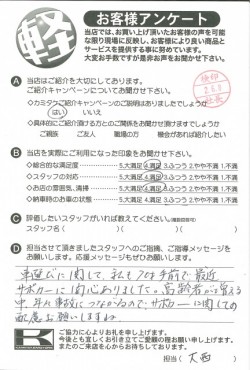 軽
お客様アンケート
当店では、お買い上げ頂いたお客様の声を可能
な限り現場に反映し、お客様により良い商品と
サービスを提供する事に努めています。
大変お手数ですが是非お声をお聞かせ下さい。
A 当店はご紹介を大切にしております。
ご紹介キャンペーンについてお聞かせ下さい。
◇カミタケご紹介キャンペーンのご説明はありましたでしょうか
はい いいえ
◇具体的にご紹介頂ける方とのご関係をお聞かせ頂けますでしょうか
ご親族 ご友人 職場の方 機会があれば紹介したい
B 当店を実際にご利用になった印象をお聞かせ下さい。
◇総合的な満足度 5.大満足 4.満足 3.ふつう 2.やや不満 1.不満
◇スタッフの対応 5.大満足 4.満足 3.ふつう 2.やや不満 1.不満
◇お店の雰囲気、清掃 5.大満足 4.満足 3.ふつう 2.やや不満 1.不満
◇納車時のお車の状態 5.大満足 4.満足 3.ふつう 2.やや不満 1.不満
C 評価したいスタッフがいれば教えてください。(複数回答可)
スタッフ名( )( )
D 担当させて頂きましたスタッフへのご指摘、ご指導メッセージを
お願いします。応援メッセージもぜひお願いします。
車選びに関して、
最近
サポカーに関心ありました。高齢者が
中、
事故につながるので、サポカーに関しての
配慮お願いしますね
ご協力に心よりお礼を申し上げます。
今後とも宜しくお引き立てご愛顧の程お願い申し上げます。
またのご来店を心からお待ちしております。
担当(大西)